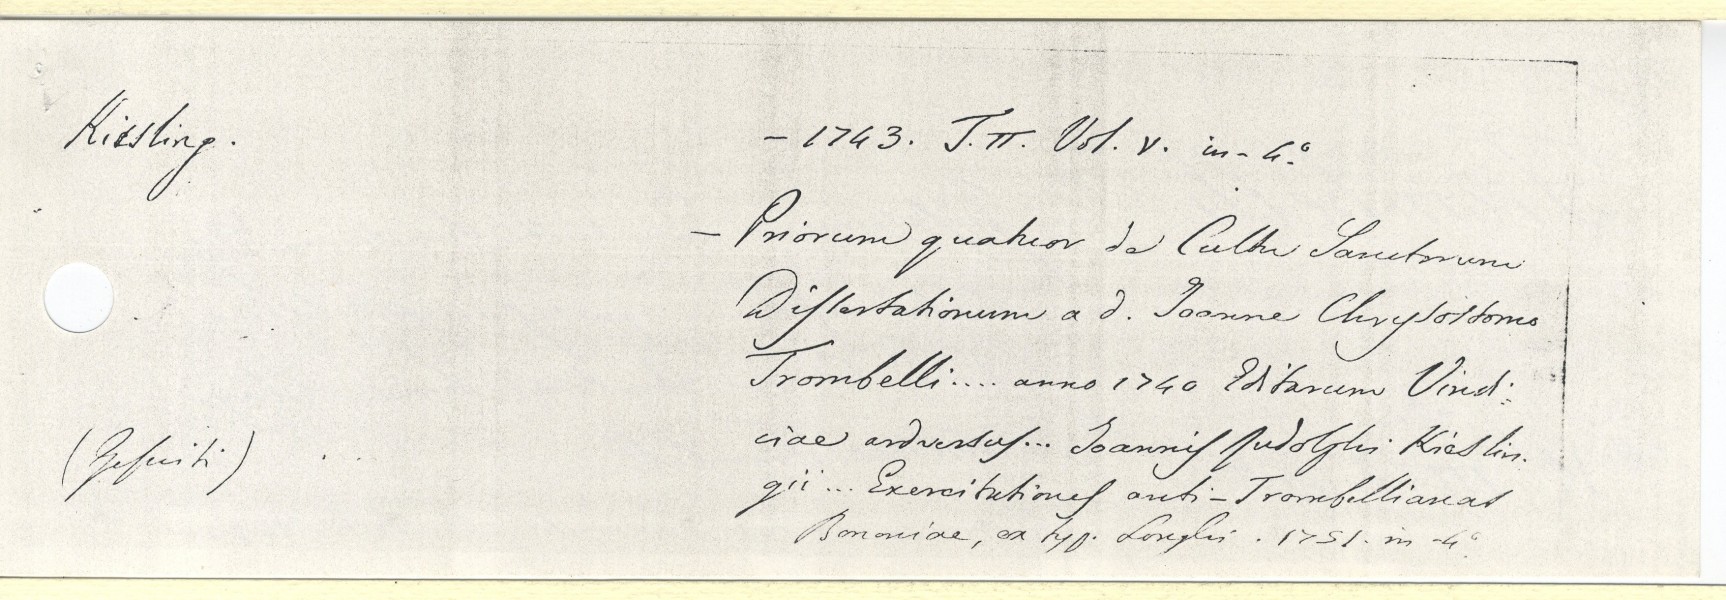 Kiesling.
– 1743. T.II. Vol. V. in-4.º
– Priorum quatuor de Cultu Sanctorum
Dissertationum a d. Joanne Chrysostomo
Trombelli.... anno 1740 Editarum Vindi:
ciae adversus... Joannis Rudolphi Kieslin.
gii... Exercitationes anti-Trombellianas
Bononiae, ex typ. Longhi. 1751. in-4º.
(Gesuiti)